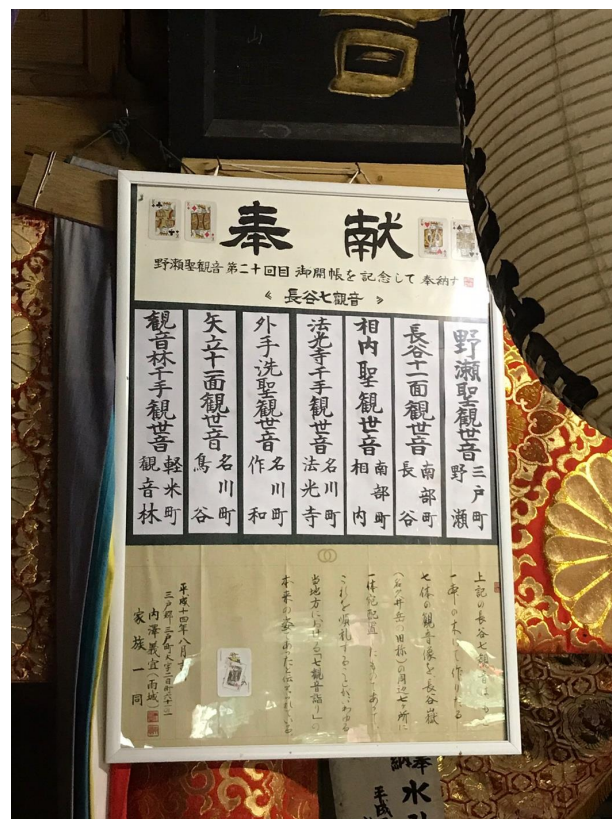 音
奉献
野瀬聖観音第二十回目御開帳を記念して奉納す
《長谷七観音》
野瀬聖観世音 三戸町 野瀬
長谷十一面観世音 南部町 長谷
相内聖観世音 南部町 相内
法光寺千手観世音 名川町 法光寺
外手洗聖観世音 名川町 作和
矢立十一面観世音 名川町 鳥谷
観音林千手観世音 軽米町 観音林
上記の長谷七観音は
一本の木で作りたる
七体の観音像を長谷嶽
(名久井岳の旧称)の周辺七ヶ所に
一体記配置したもので
これを巡礼することがいわゆる
当地方における「七観音詣り」の
本来の姿であったと伝えられている
平成十四年八月
三戸郡三戸町大字
内澤義宜(雨城)
家族一同
奉
納
水
平成